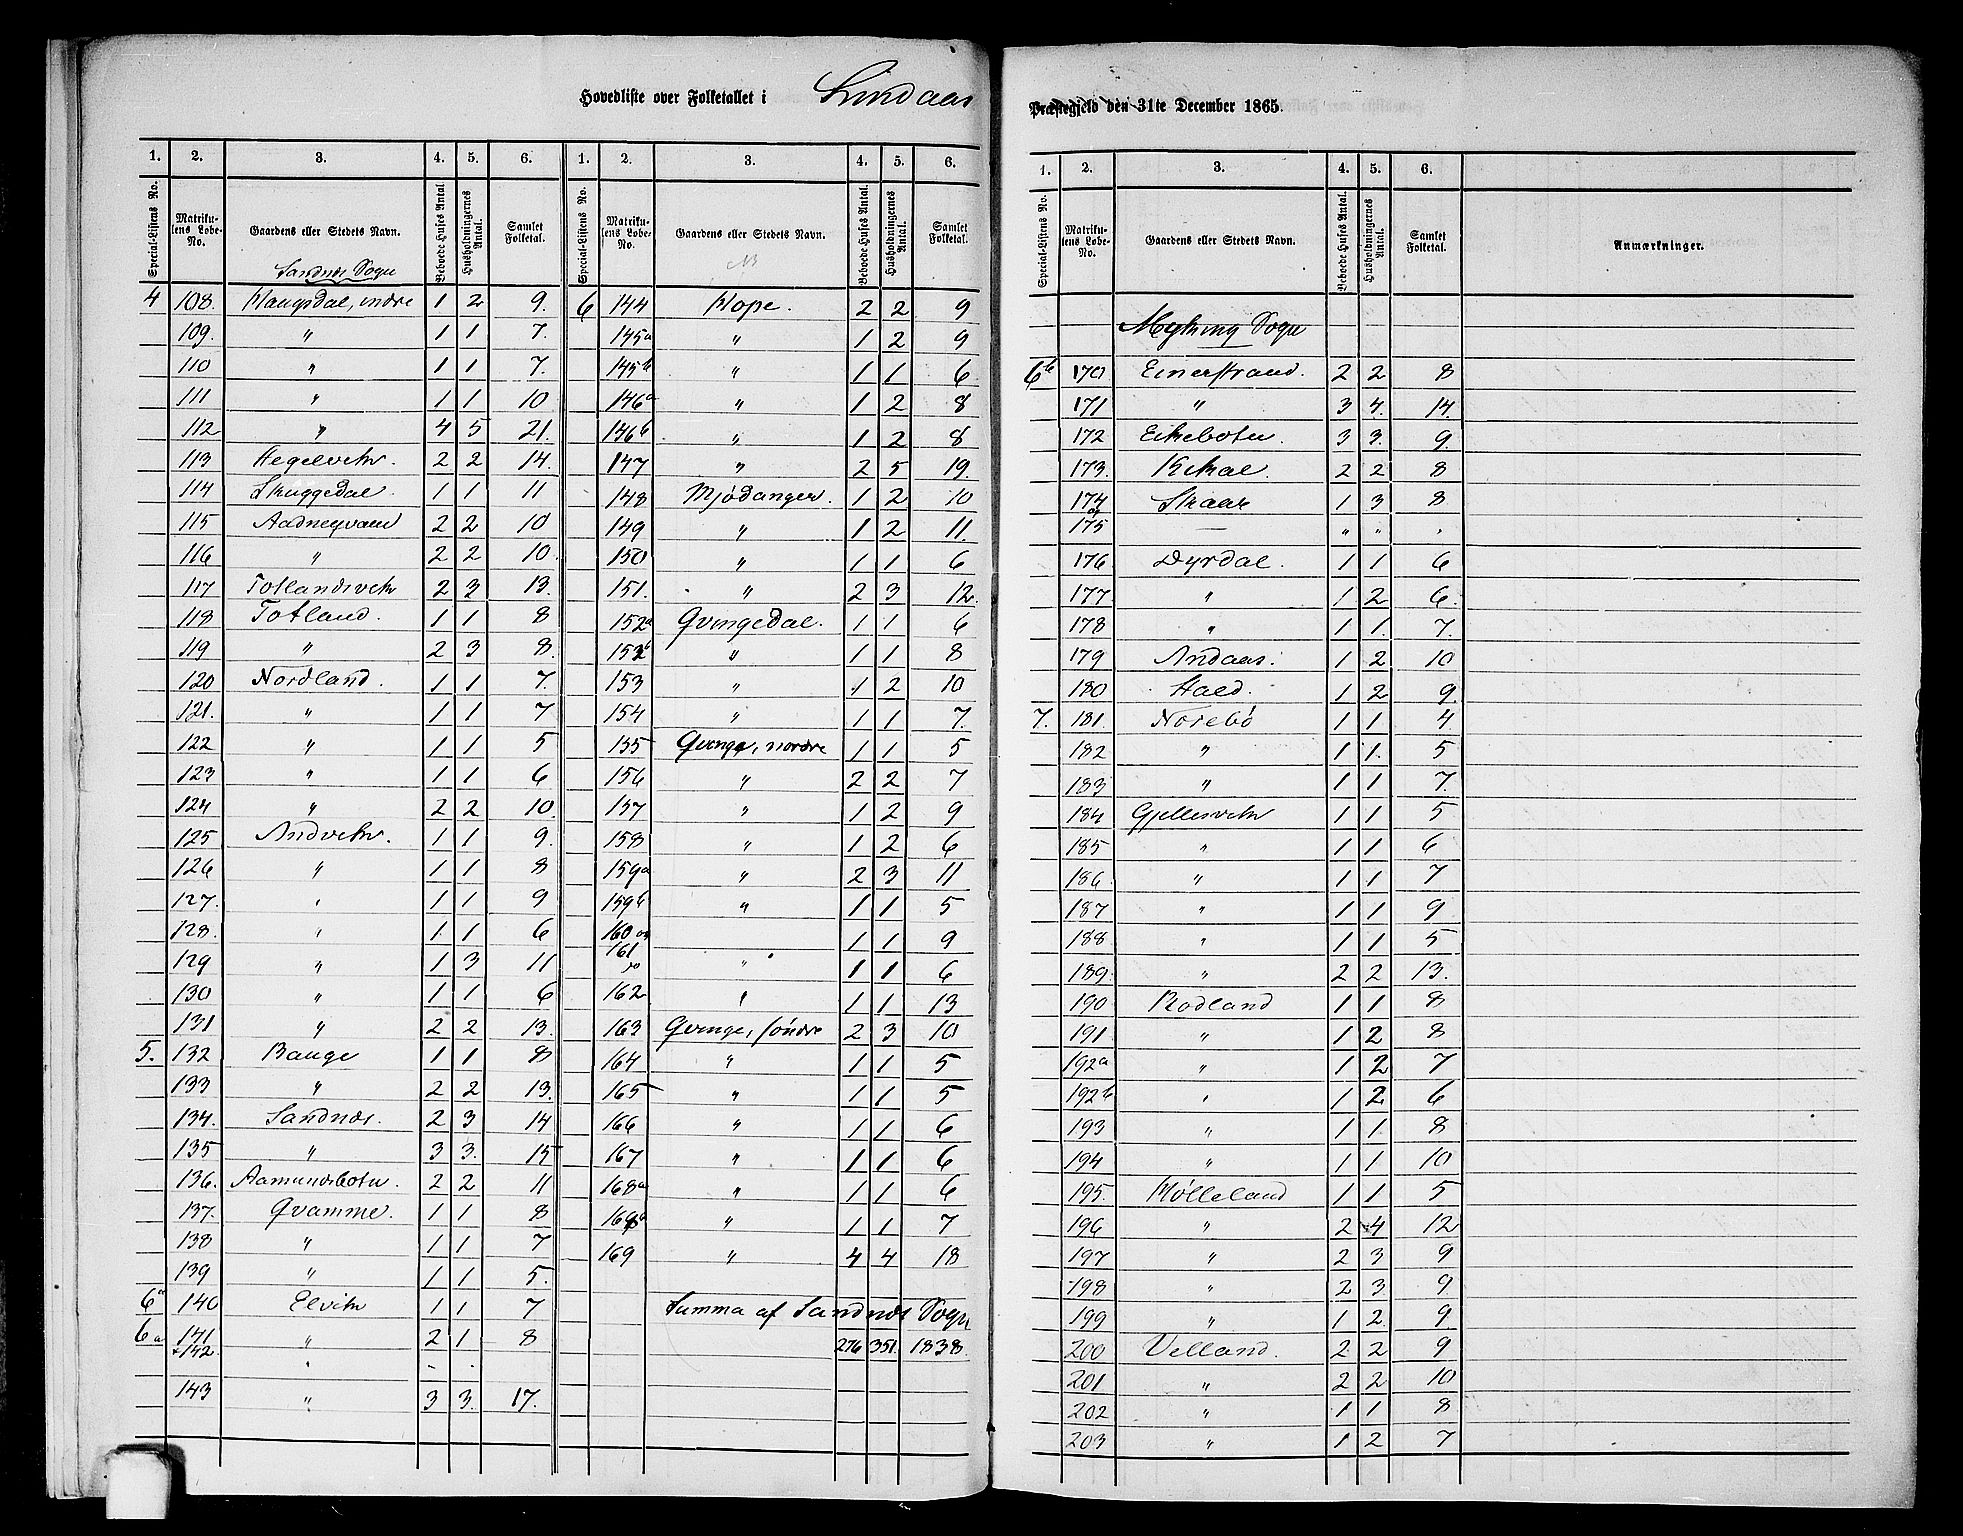 Hovedliste over Folketallet i Lindaas
Præstegjeld den 31te December 1865.
1. 2. 3. 4. 5. 6. 1. 2. 3. 4. 5. 6.
Special-Listens No. Matrikulens Løbe-No. Gaardens eller Stedets Navn. Beboede Huses Antal. Husholdningernes Antal. Samlet Folketal. Special-Listens No. Matrikulens Løbe-No. Gaardens eller Stedets Navn. Beboede Huses Antal. Husholdningernes Antal. Samlet Folketal.
Sandnæs Sogn
4 108. Haugsdal, indre 1 2 9. 6 144 Hope. 2 2 9
109. " 1 1 7. 145a " 1 2 9
110 " 1 1 7. 145b " 1 1 6
111 " 1 1 10 146a " 1 2 8
112 " 4 5 21. 146b " 1 2 8
113 Hegelvik. 2 2 14. 147 " 2 5 19.
114 Skuggedal. 1 1 11 148 Mjødanger. 1 2 10
115 Aadneqvam 2 2 10 149 " 1 2 11.
116 " 2 2 10. 150 " 1 1 6
117 Totlandsvik 2 3 13. 151. " 2 3 12.
118 Totland. 1 1 8 152a Qvingedal. 1 1 6
119 " 2 3 8. 152b " 1 1 8
120 Nordland. 1 1 7. 153 " 1 2 10
121. " 1 1 7 154 " 1 1 7.
122 " 1 1 5 155 Qvinge, nordre 1 1 5
123 " 1 1 6 156 " 2 2 7
124 " 2 2 10. 157 " 1 2 9
125 Andvik. 1 1 9. 158 " 1 2 6
126 " 1 1 8 159a " 2 3 11
127. " 1 1 9 159b " 1 1 5
128. " 1 1 6 160 og 1 1 9
129 " 1 3 11 161 " 1 1 6
130 " 1 1 6 162 " 1 1 13
131 " 2 2 13. 163 Qvinge, søndre 2 3 10
5. 132 Bauge 1 1 8 164 " 1 1 5
133 " 2 2 13. 165 " 1 1 5
134. Sandnæs. 2 3 14 166 " 1 1 6
135 " 3 3. 15 167 " 1 1 6
136. Aamundsbotn. 2 2 11 168a " 1 1 6
137. Qvamme. 1 1 8 168b " 1 1 7
138 " 1 1 7 169 " 4 4 18
139 " 1 1 5.
6a 140 Elvik 1 1 7 Summa af Sandnæs Sogn
6a 141 + 142 " 2 1 8 276 351. 1838.
143 " 3 3. 17.
1. 2. 3. 4. 5. 6.
Special-Listens No. Matrikulens Løbe-No. Gaardens eller Stedets Navn. Beboede Huses Antal. Husholdningernes Antal. Samlet Folketal. Anmærkninger.
Myking Sogn
6b 170 Einerstrand. 2 2 8
171 " 3 4. 14.
172 Eikebotn. 3 3. 9.
173. Kikal 2 2 8
174 Skaar 1 3 8
175 — " " "
176 Dyrdal. 1 1 6
177 " 1 2 6.
178 " 1 1. 7.
179 Andaas. 1 2 10
180 Hald. 1 2 9.
7. 181. Norebø 1 1 4
182 " 1 1. 5
183 " 1 1 7.
184 Gjellesvik 1 1 5
185 " 1 1 6
186. " 1 1 7
187 " 1 1 9
188. " 1 1 5
189. " 2 2 13.
190 Rodland 1 1 8
191. " 1 2 8
192a " 1 2 7
192b " 1 2 6
193 " 1 1. 8
194 " 1 1 10
195. Hølleland 1 1 5
196 " 2 4 12
197 " 2 3 9
198 " 2 3. 9
199 " 1 2. 9
200 Velland. 2 2 9
201 " 2 2 10
202 " 1 1 8
203 " 1 2 7